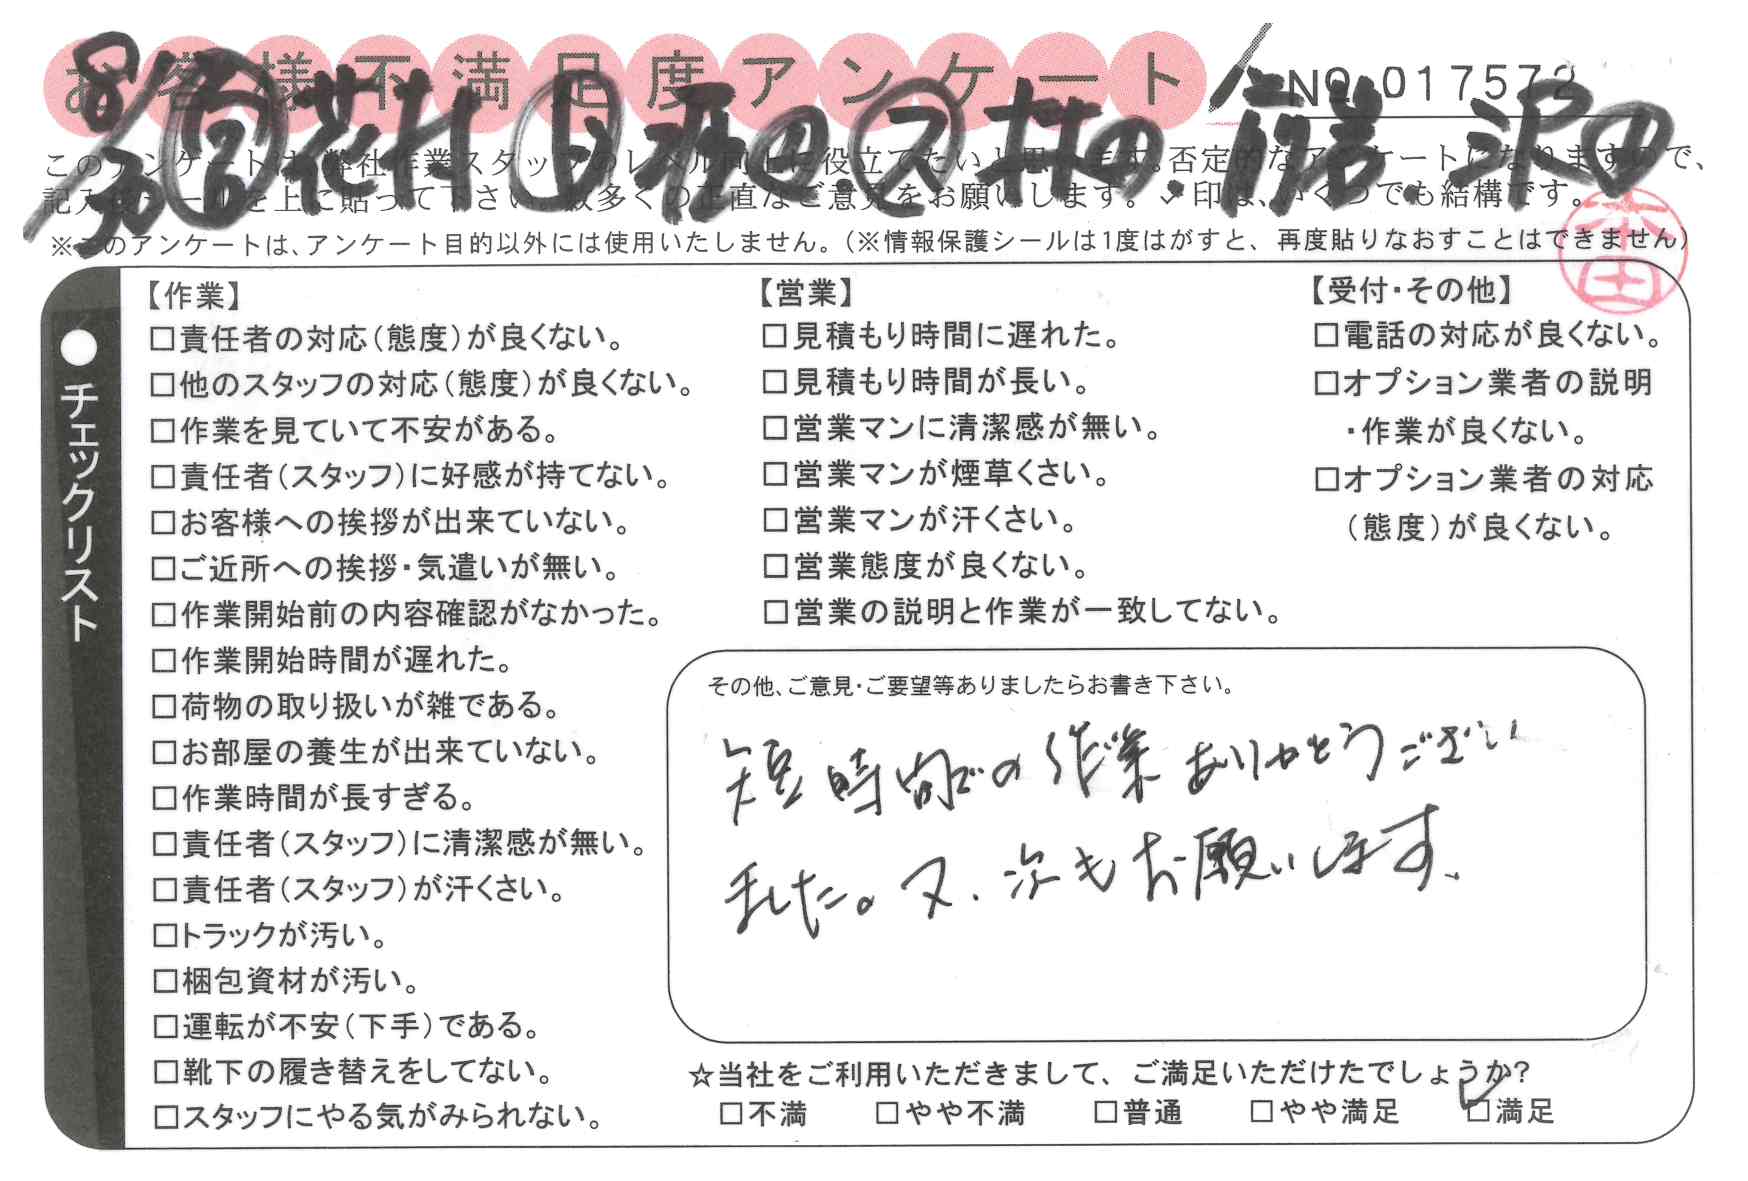 お客様不満足度アンケート
NO 017572
8/30
このアンケートは、弊社作業スタッフのレベル向上に役立てたいと思います。否定的なアンケートになりますので、
記入後シールを上に貼って下さい。数多くの正直なご意見をお願いします。✓印は、いくつでも結構です。
※このアンケートは、アンケート目的以外には使用いたしません。(※情報保護シールは1度はがすと、再度貼りなおすことはできません)
本田
●チェックリスト
【作業】
□責任者の対応(態度)が良くない。
□他のスタッフの対応(態度)が良くない。
□作業を見ていて不安がある。
□責任者(スタッフ)に好感が持てない。
□お客様への挨拶が出来ていない。
□ご近所への挨拶・気遣いが無い。
□作業開始前の内容確認がなかった。
□作業開始時間が遅れた。
□荷物の取り扱いが雑である。
□お部屋の養生が出来ていない。
□作業時間が長すぎる。
□責任者(スタッフ)に清潔感が無い。
□責任者(スタッフ)が汗くさい。
□トラックが汚い。
□梱包資材が汚い。
□運転が不安(下手)である。
□靴下の履き替えをしてない。
□スタッフにやる気がみられない。
【営業】
□見積もり時間に遅れた。
□見積もり時間が長い。
□営業マンに清潔感が無い。
□営業マンが煙草くさい。
□営業マンが汗くさい。
□営業態度が良くない。
□営業の説明と作業が一致してない。
【受付・その他】
□電話の対応が良くない。
□オプション業者の説明
・作業が良くない。
□オプション業者の対応
(態度)が良くない。
その他、ご意見・ご要望等ありましたらお書き下さい。
短時間での作業ありがとうござい
ました。又、次もお願いします。
☆当社をご利用いただきまして、ご満足いただけたでしょうか?
□不満 □やや不満 □普通 □やや満足 ☑満足